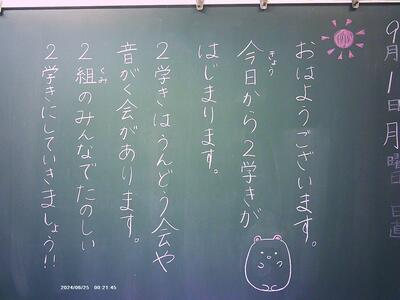 9月1日月曜日 日直
おはようございます。
今日から2学きが
きょう
はじまります。
2学きはうんどう会や
音がく会があります。
2組のみんなでたのしい
くみ
2学きにしていきましょう!!
2024/08/25 00:21:45